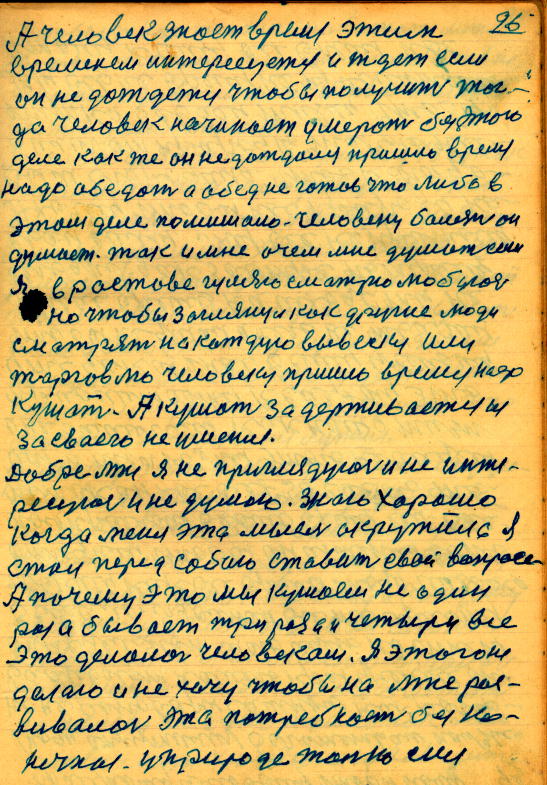 26
А человек знает время этим
временем интересуетця и ждет если
он не дождетця чтобы получит тог-
да человек начинает умерат без этого
деле как же он не дождался пришло время
надо обедат а обед не готов что либо в
этом деле помишало. человеку болеят он
думает. так и мне очем мне думат если
Я в ростове гуляю сматрю любуюся
но чтобы заглянул как другие люди
сматрят на каждую вывеску или
тарговлю человеку пришло время надо
Кушат. А кушат задерживаетця
засваего не имения.
Добре мне я не приглядуюся и не инте-
ресуюся и не думаю. знаю хорошо
когда меня эта мысля окружила я
стал перед собою ставит свой вопрос
А почему это мы кушаем не один
раз а бывает три раза и четыри все
Это делалос человекам. Я этого не
делаю и не хочу чтобы на мне раз-
вивалос эта потребност без ко-
нечная. у природе толко сил